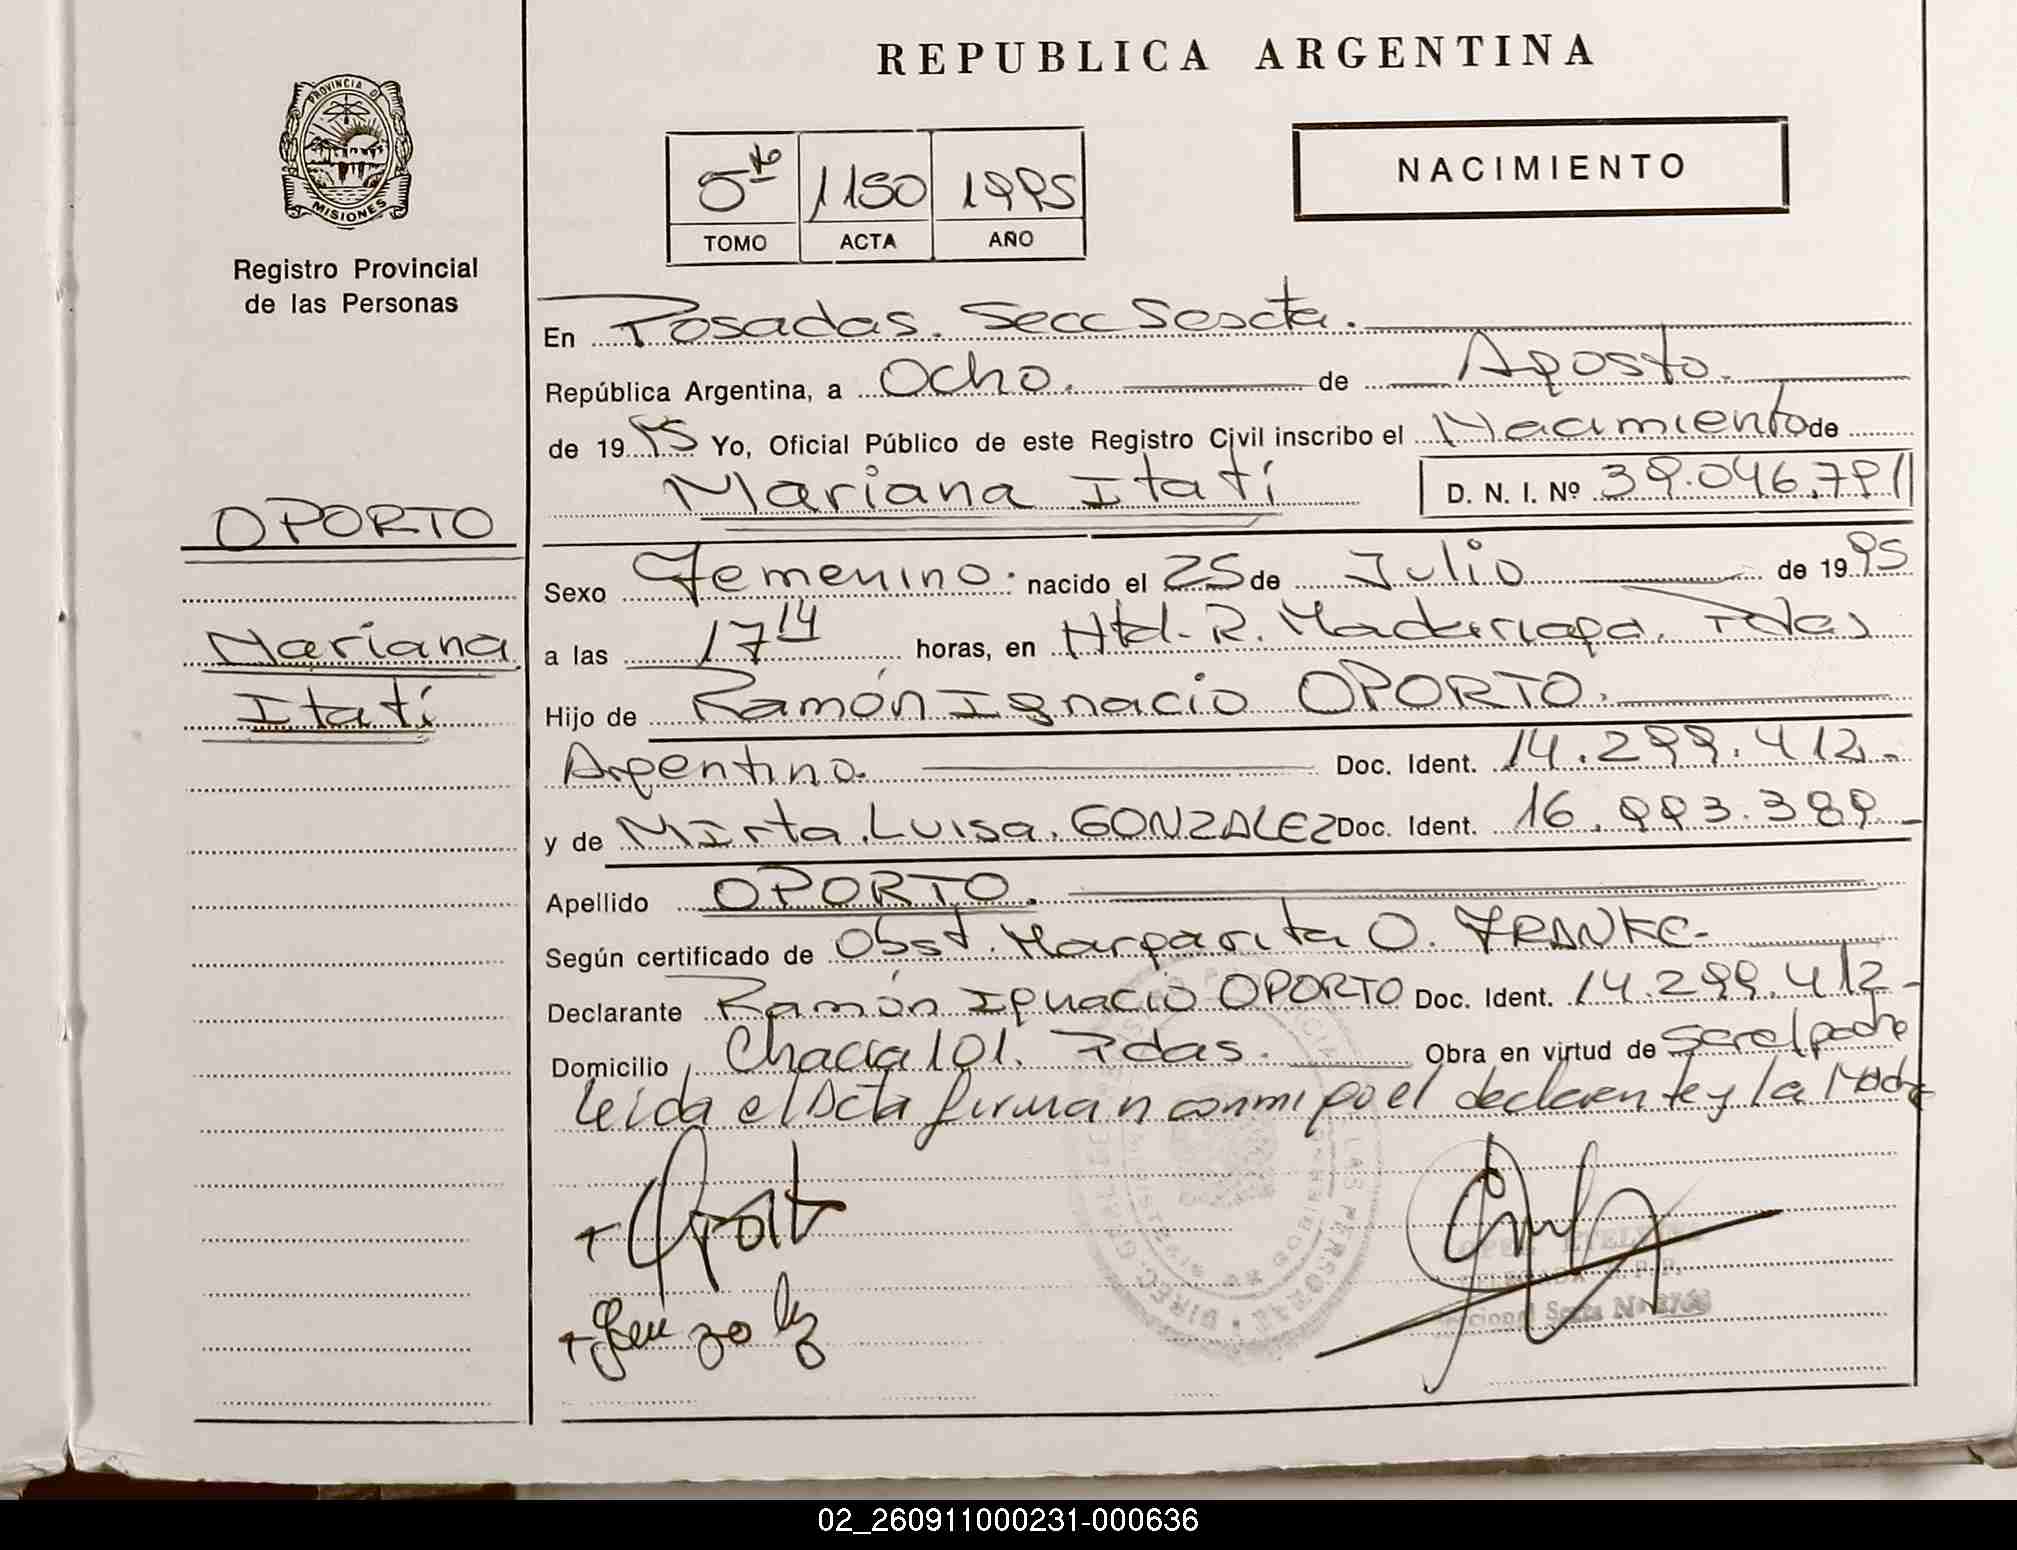 REPUBLICA ARGENTINA
PROVINCIA D
MISIONES
Registro Provincial
de las Personas
5to 1150 1995
TOMO ACTA AÑO
NACIMIENTO
En Posadas. Secc Sexta.
República Argentina, a Ocho. de Agosto.
de 1995 Yo, Oficial Público de este Registro Civil inscribo el Nacimiento de
Mariana Itatí D. N. I. Nº 39.046.791
OPORTO
Mariana
Itatí
Sexo Femenino. nacido el 25 de Julio de 1995
a las 17 14 horas, en Htal. R. Madariaga. Pdas
Hijo de Ramón Ignacio OPORTO.
Argentino. Doc. Ident. 14.299.412.-
y de Mirta. Luisa. GONZALEZ Doc. Ident. 16.993.389.-
Apellido OPORTO.
Según certificado de Obst. Margarita O. FRANKE-
Declarante Ramón Ignacio OPORTO Doc. Ident. 14.299.412-
Domicilio Chacra 101. Pdas. Obra en virtud de ser el padre
Leida el Acta firman conmigo el declarante y la Madre
Oporto
Gonzalez
02_260911000231-000636